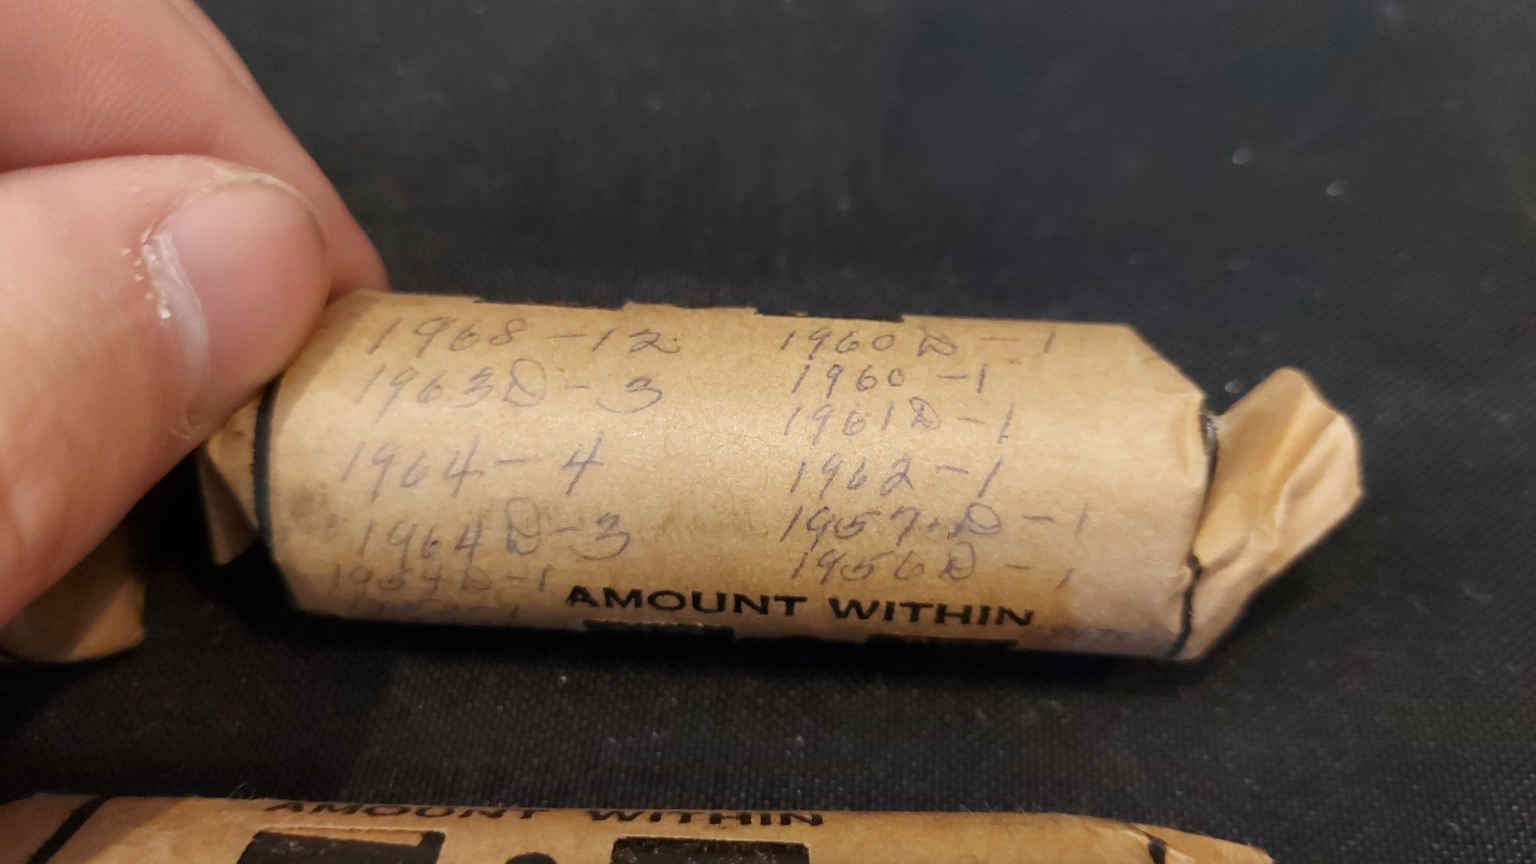 1968 - 12
1963 D - 3
1964 - 4
1964 D - 3
1954 D - 1
1960 D - 1
1960 - 1
1961 D - 1
1962 - 1
1957 D - 1
1956 D - 1
AMOUNT WITHIN
AMOUNT WITHIN